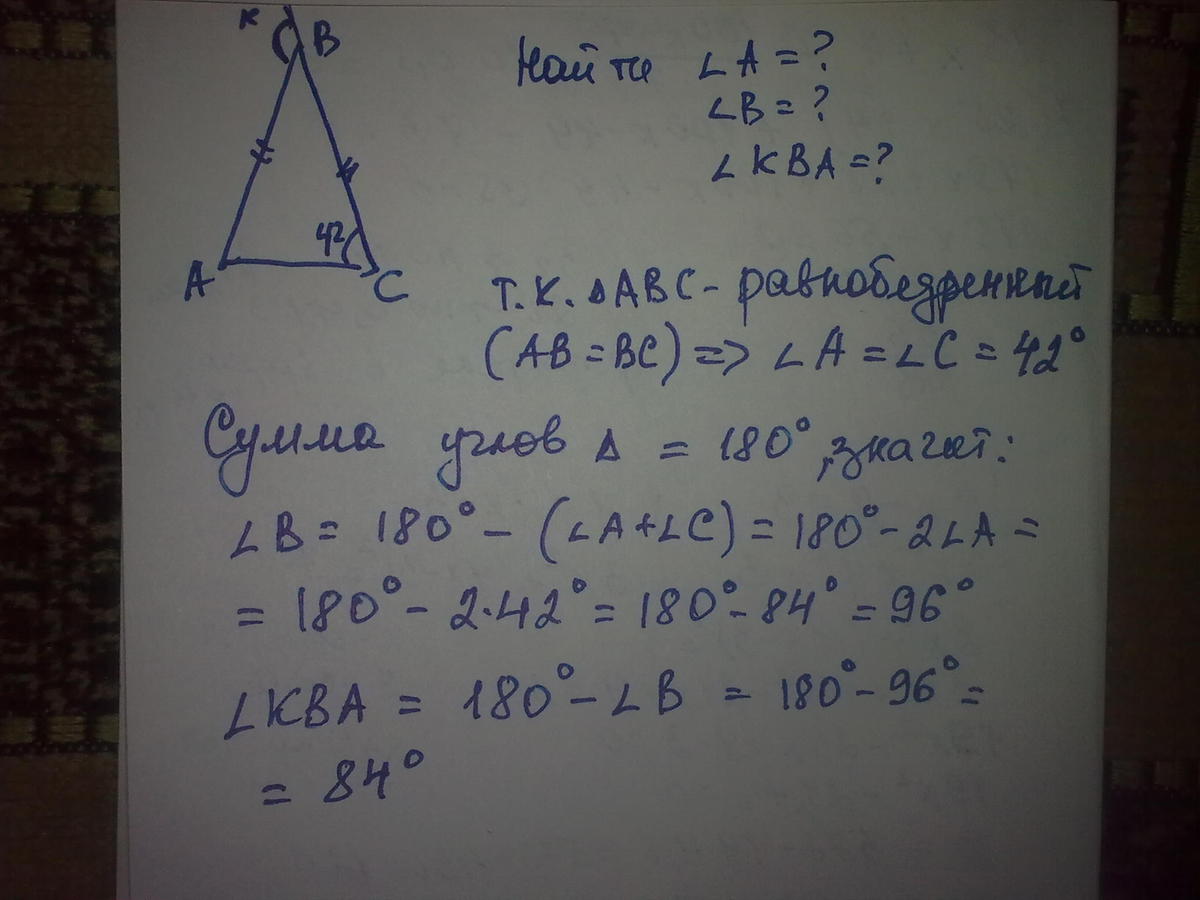 К
B
Найти ∠A = ?
∠B = ?
∠KBA = ?
42
A
C
т.к. ΔABC - равнобедренный
(AB = BC) => ∠A = ∠C = 42°
Сумма углов Δ = 180°, значит:
∠B = 180° - (∠A + ∠C) = 180° - 2∠A =
= 180° - 2·42° = 180° - 84° = 96°
∠KBA = 180° - ∠B = 180° - 96° =
= 84°